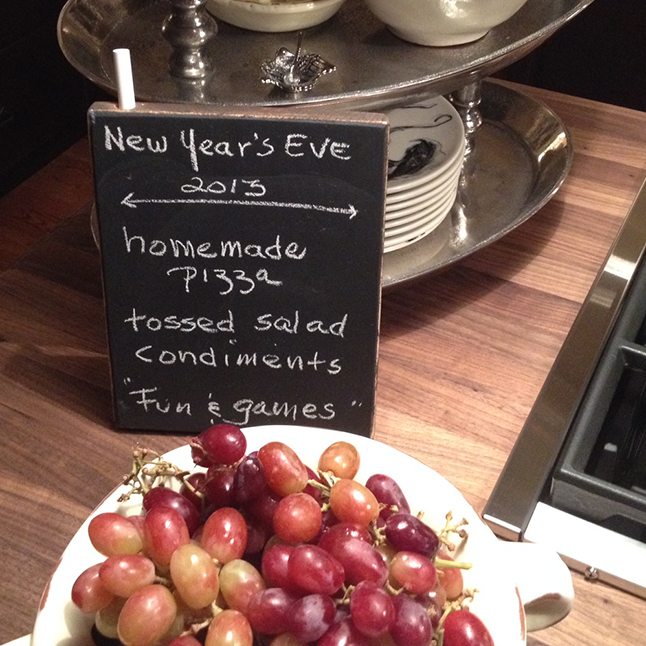 New Year's Eve
2013
homemade
pizza
tossed salad
condiments
"Fun & games"